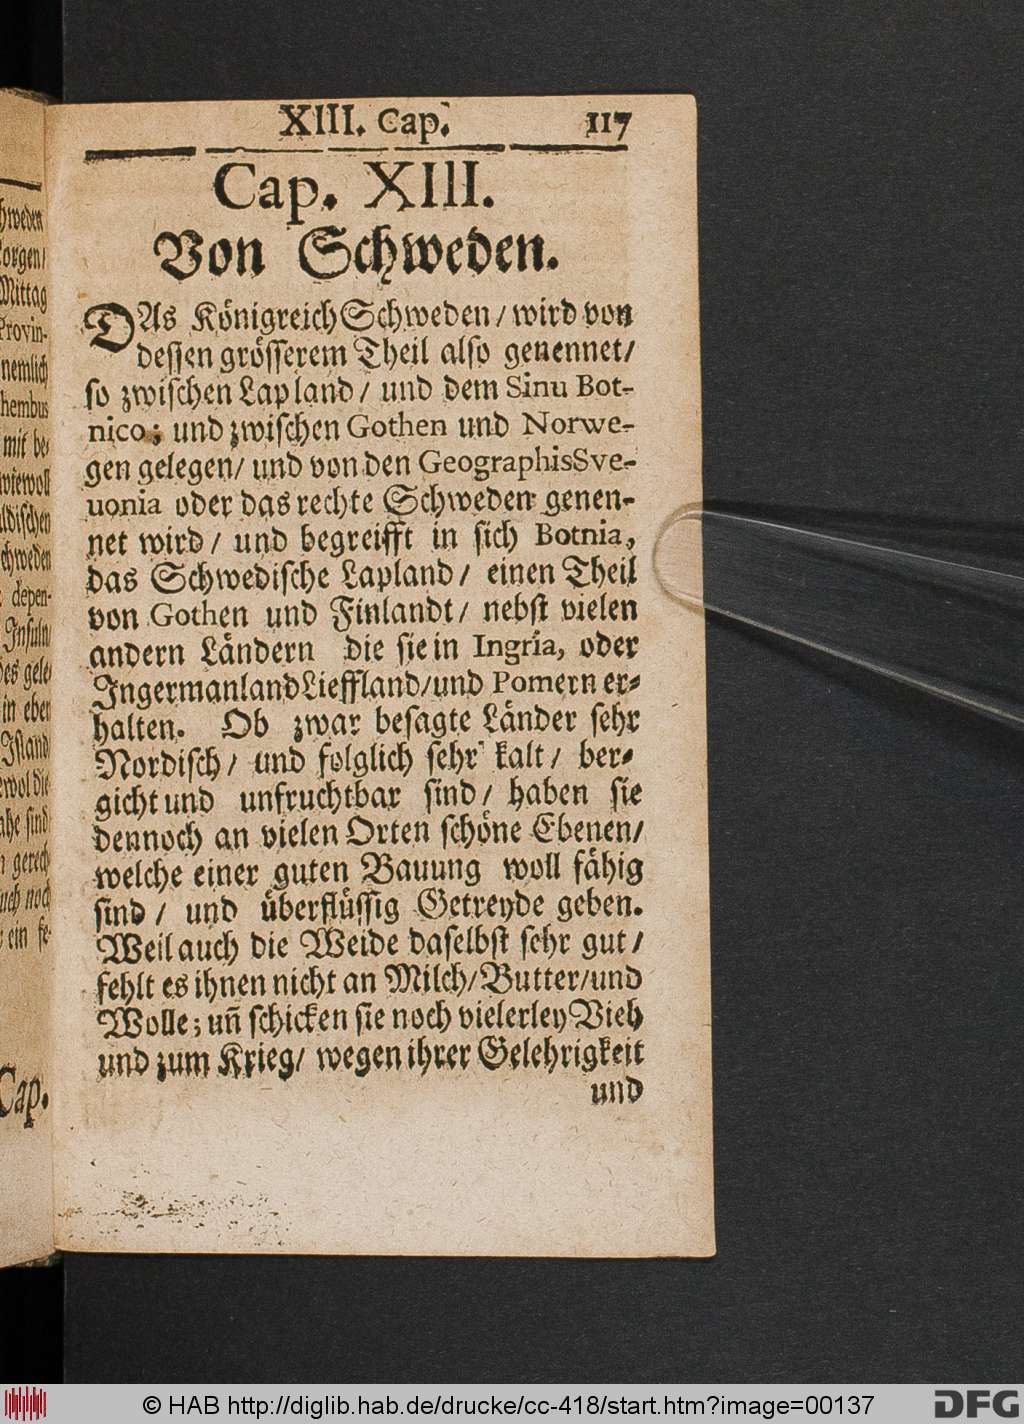 XIII. Cap. 117
Cap. XIII.
Von Schweden.
DAs Königreich Schweden / wird von
dessen grösserem Theil also genennet /
so zwischen Lapland / und dem Sinu Bot-
nico; und zwischen Gothen und Norwe-
gen gelegen / und von den Geographis Sve-
uonia oder das rechte Schweden genen-
net wird / und begreifft in sich Botnia,
das Schwedische Lapland / einen Theil
von Gothen und Finlandt / nebst vielen
andern Ländern die sie in Ingria, oder
Ingermanland Lieffland / und Pomern er-
halten. Ob zwar besagte Länder sehr
Nordisch / und folglich sehr kalt / ber-
gicht und unfruchtbar sind / haben sie
dennoch an vielen Orten schöne Ebenen /
welche einer guten Bauung woll fähig
sind / und überflüssig Getreyde geben.
Weil auch die Weide daselbst sehr gut /
fehlt es ihnen nicht an Milch / Butter / und
Wolle; uñ schicken sie noch vielerley Vieh
und zum Krieg / wegen ihrer Gelehrigkeit
und
hweden
orgen /
Mittag
Provin-
nemlich
hembus
mit be-
wiewoll
ldischen
chweden
depen-
Insuln
des gele-
in eben
Island
wol die
ahe sind
gerech
uch noch
ein fe-
Cap.
© HAB http://diglib.hab.de/drucke/cc-418/start.htm?image=00137
DFG